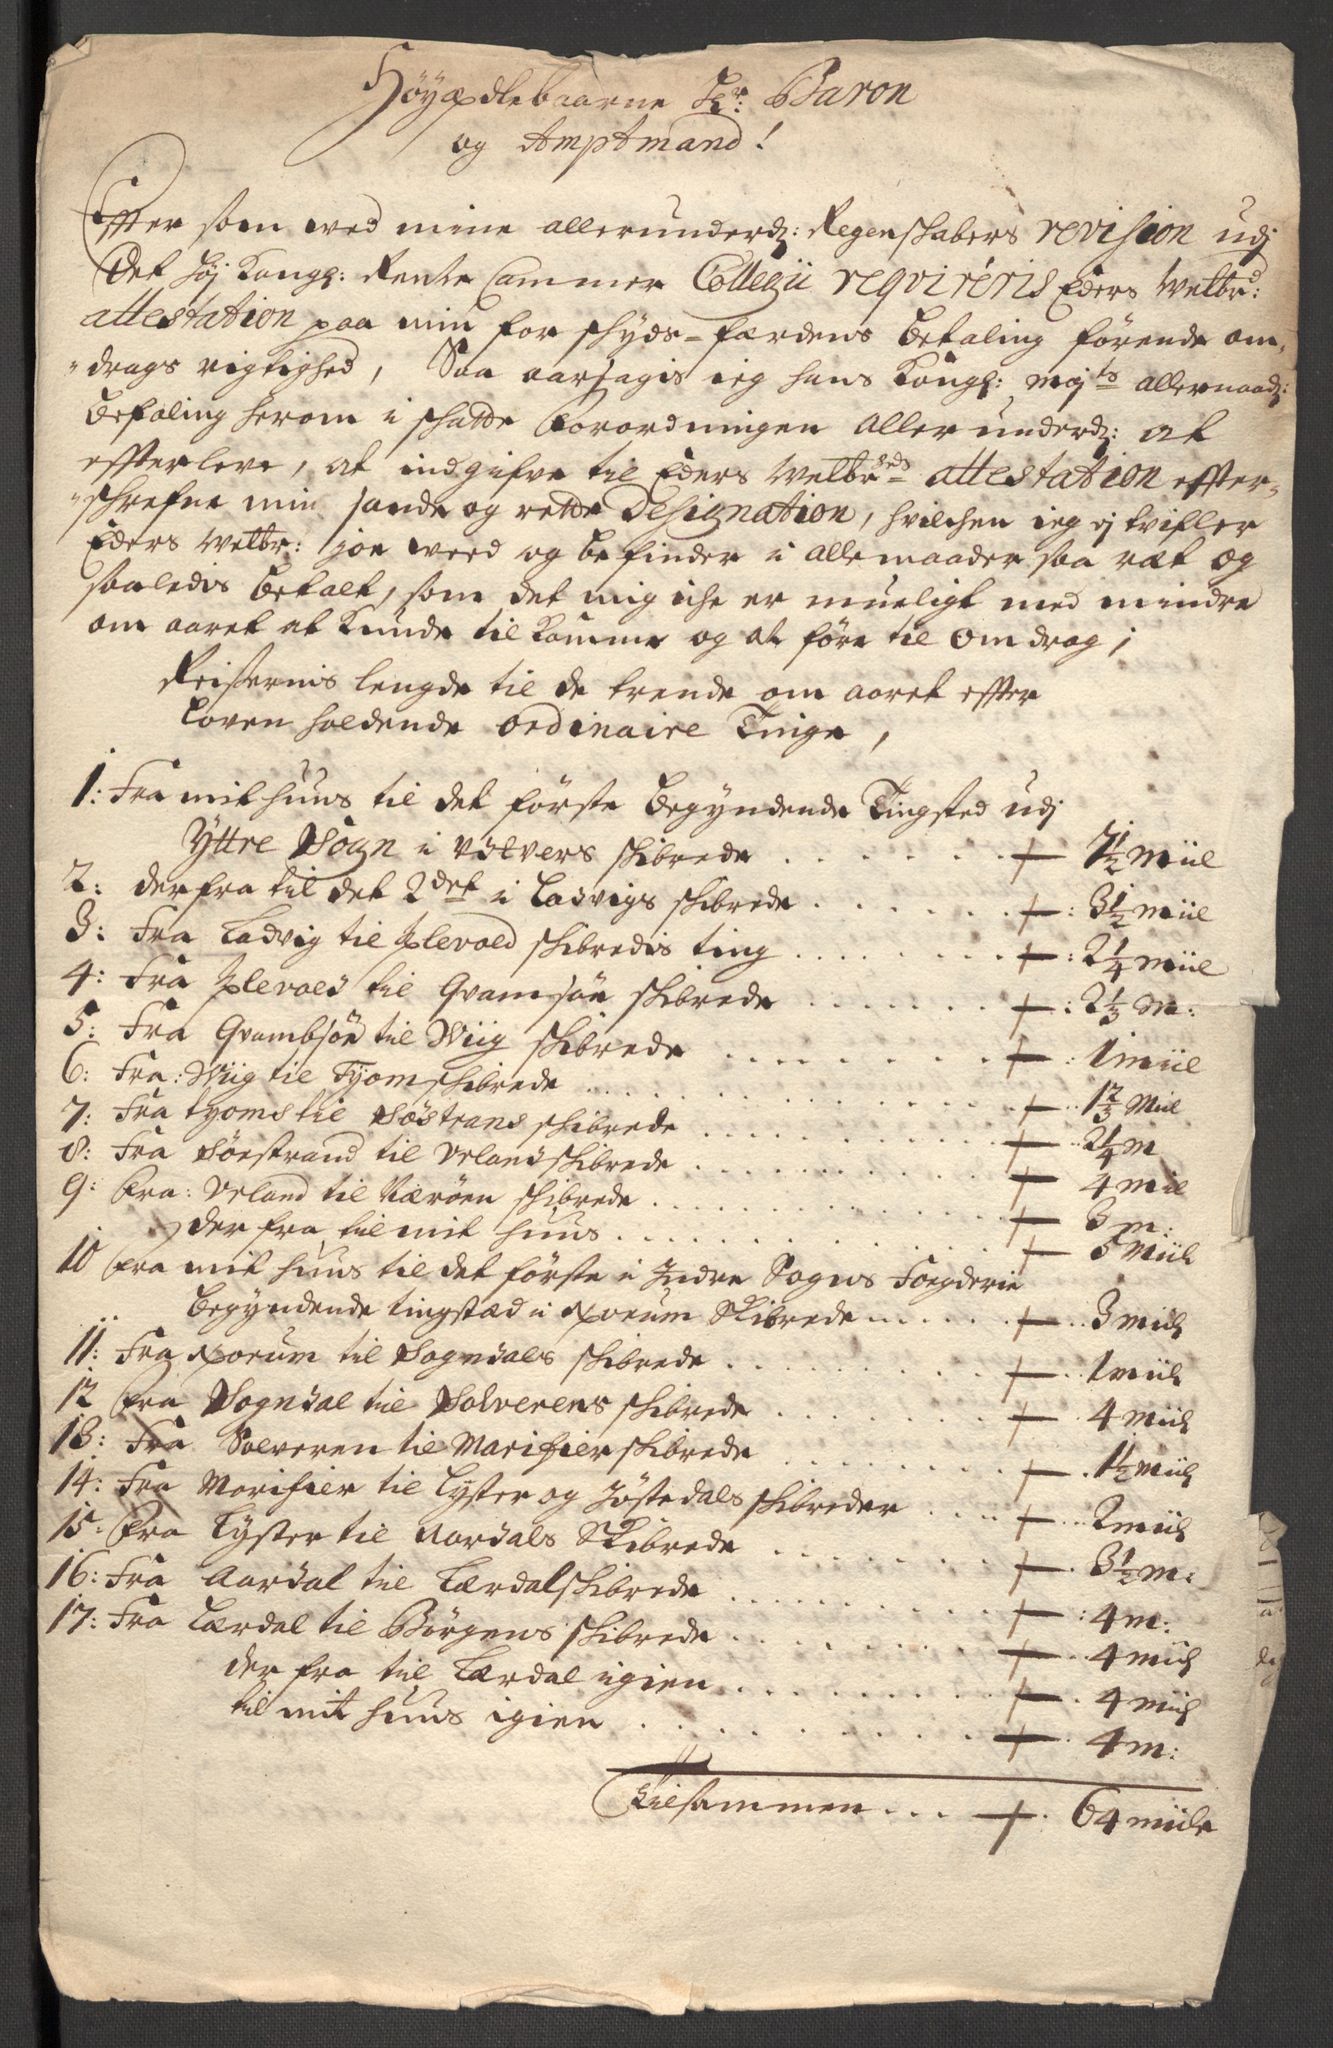 Høyædlebaarne Hr: Baron
og Amptmand!
Effter som ved mine allerunderd: Regenskabers revision udj
Det høj Kongl: Rente Cammer Collegii requireris Eders Velbr:
attestation paa min for skyds-færdens betaling førende om-
drags rigtighed, Saa aarsagis ieg hans Kongl: Majts allernaad:
befaling herom i skatte forordningen allerunderd: at
effterleve, at indgifve til Eders Velbrheds attestation effter-
schrefne min sande og rette Designation, hvilchen ieg ej tvifler
Eders Velbr: joe veed og befinder i alle maader saa ræt og
saaledis betalt, som det mig iche er mueligt med mindre
om aaret at kunde til komme og at føre til omdrag;
Reisernis lengde til de trende om aaret effter
Loven holdende ordinaire Tinge,
1: Fra mit huus til det første begyndende Tingsted udj
Yttre Sogn i skibrede . . . 7 1/2 miil
2: derfra til det 2det i Ladvigs skibrede . . . : 3 1/2 miil
3: Fra Ladvig til Klevold skibredis ting . . . : 2 1/4 miil
4: Fra Klevold til Qvamsøe skibrede . . . : 2 1/3 M:
5: Fra Qvambsøe til Wiig skibrede . . . : 1 miil
6: Fra: Wiig til Tyom skibrede . . . 1 2/3 Miil
7: Fra tyoms til Søstrans skibrede . . . 2 1/4 m
8: Fra Søestrand til Urland skibrede . . . 4 miil
9: Fra: Urland til Nærøen skibrede . . . 3 m:
der fra til mit huus . . . 5 Miil
10 Fra mit huus til det første i Indre Sogns Fogderie
begyndende tingstæd i Norum Skibrede . . . 3 miil
11: Fra Norum til Sogndals skibrede . . . 1 miil
12 Fra Sogndal til Solverens skibrede . . . 4 miil
13: Fra Solveren til Marifier skibrede . . . 1 1/2 miil
14: Fra Marifier til Lyster og Jøstedals skibreder . . . 2 miil
15: Fra Lyster til Aardals Skibrede . . . 3 1/2 m:
16: Fra Aardal til Lærdal skibrede . . . : 4 m:
17: Fra Lærdal til Børgens skibrede . . . 4 miil
der fra til Lærdal igien . . . 4 miil
til mit huus igien . . . 4 m:
Tilsammen . . . 64 miile